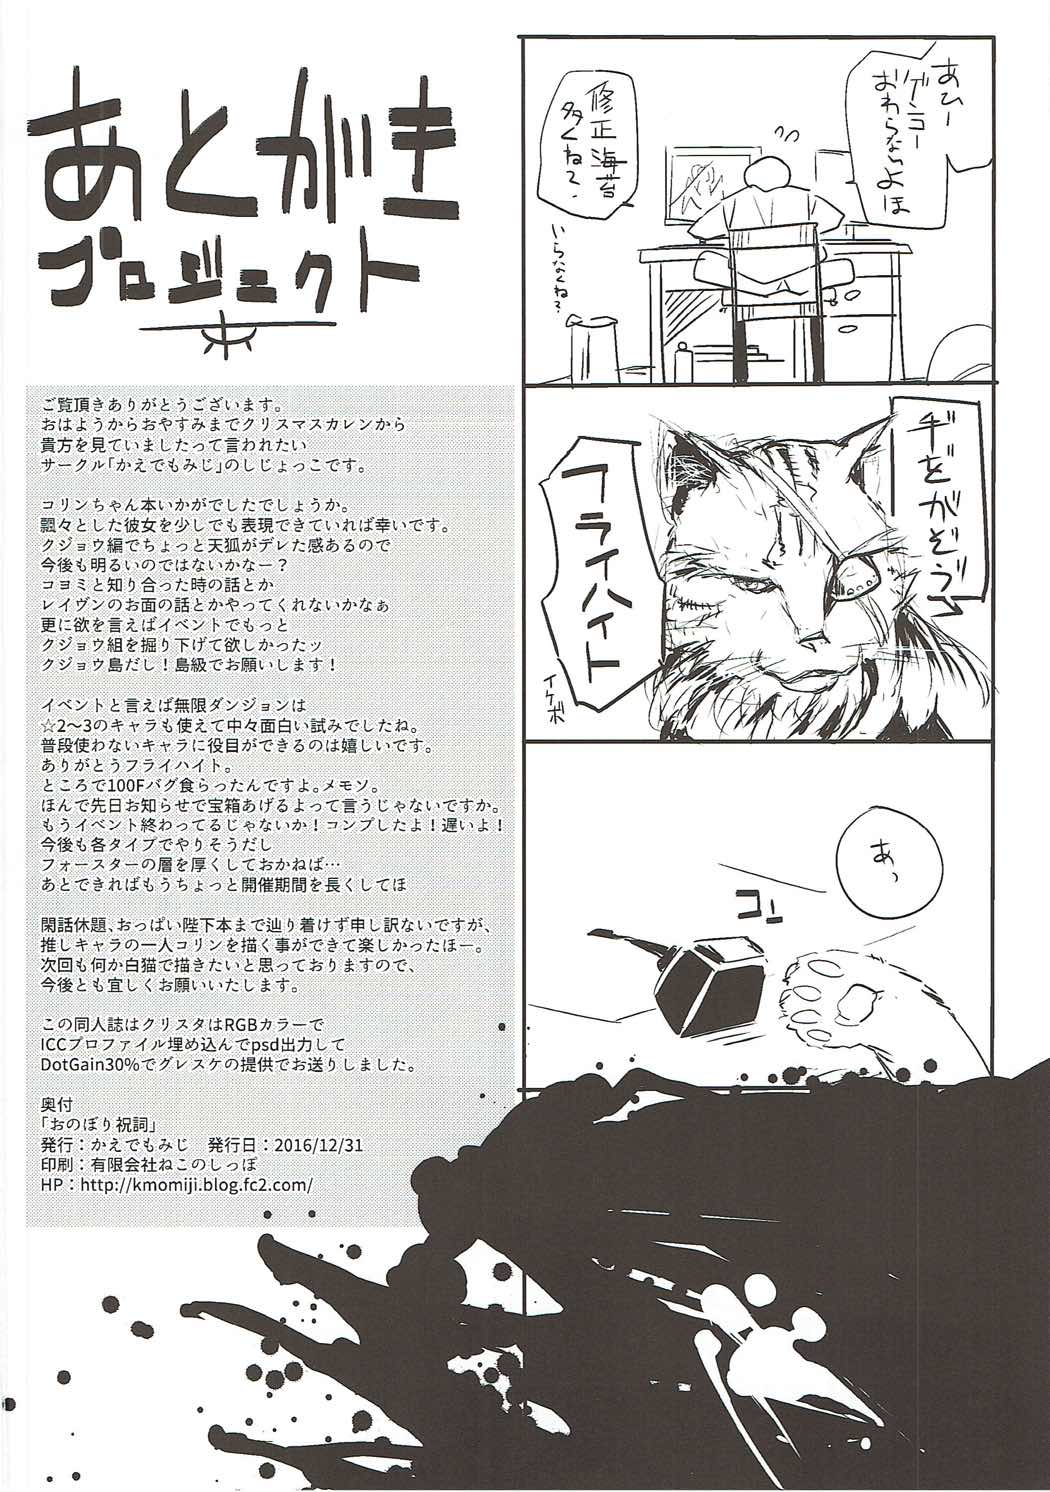 あとがき
プロジェクト
ご覧頂きありがとうございます。
おはようからおやすみまでクリスマスカレンから
貴方を見ていましたって言われたい
サークル「かえでもみじ」のしじょっこです。
コリンちゃん本いかがでしたでしょうか。
飄々とした彼女を少しでも表現できていれば幸いです。
クジョウ編でちょっと天狐がデレた感あるので
今後も明るいのではないかなー？
コヨミと知り合った時の話とか
レイヴンのお面の話とかやってくれないかなぁ
更に欲を言えばイベントでもっと
クジョウ組を掘り下げて欲しかったッ
クジョウ島だし！島級でお願いします！
イベントと言えば無限ダンジョンは
☆2～3のキャラも使えて中々面白い試みでしたね。
普段使わないキャラに役目ができるのは嬉しいです。
ありがとうフライハイト。
ところで100Fバグ食らったんですよ。メモソ。
ほんで先日お知らせで宝箱あげるよって言うじゃないですか。
もうイベント終わってるじゃないか！コンプしたよ！遅いよ！
今後も各タイプでやりそうだし
フォースターの層を厚くしておかねば…
あとできればもうちょっと開催期間を長くしてほ
閑話休題、おっぱい陛下本まで辿り着けず申し訳ないですが、
推しキャラの一人コリンを描く事ができて楽しかったほー。
次回も何か白猫で描きたいと思っておりますので、
今後とも宜しくお願いいたします。
この同人誌はクリスタはRGBカラーで
ICCプロファイル埋め込んでpsd出力して
DotGain30%でグレスケの提供でお送りしました。
奥付
「おのぼり祝詞」
発行：かえでもみじ　発行日：2016/12/31
印刷：有限会社ねこのしっぽ
HP：http://kmomiji.blog.fc2.com/
あひー
ゲンコー
おわらないよほ
修正海苔
多くね？
いらなくね？
手をかぞう
フライハイト
イケボ
あっ
コン